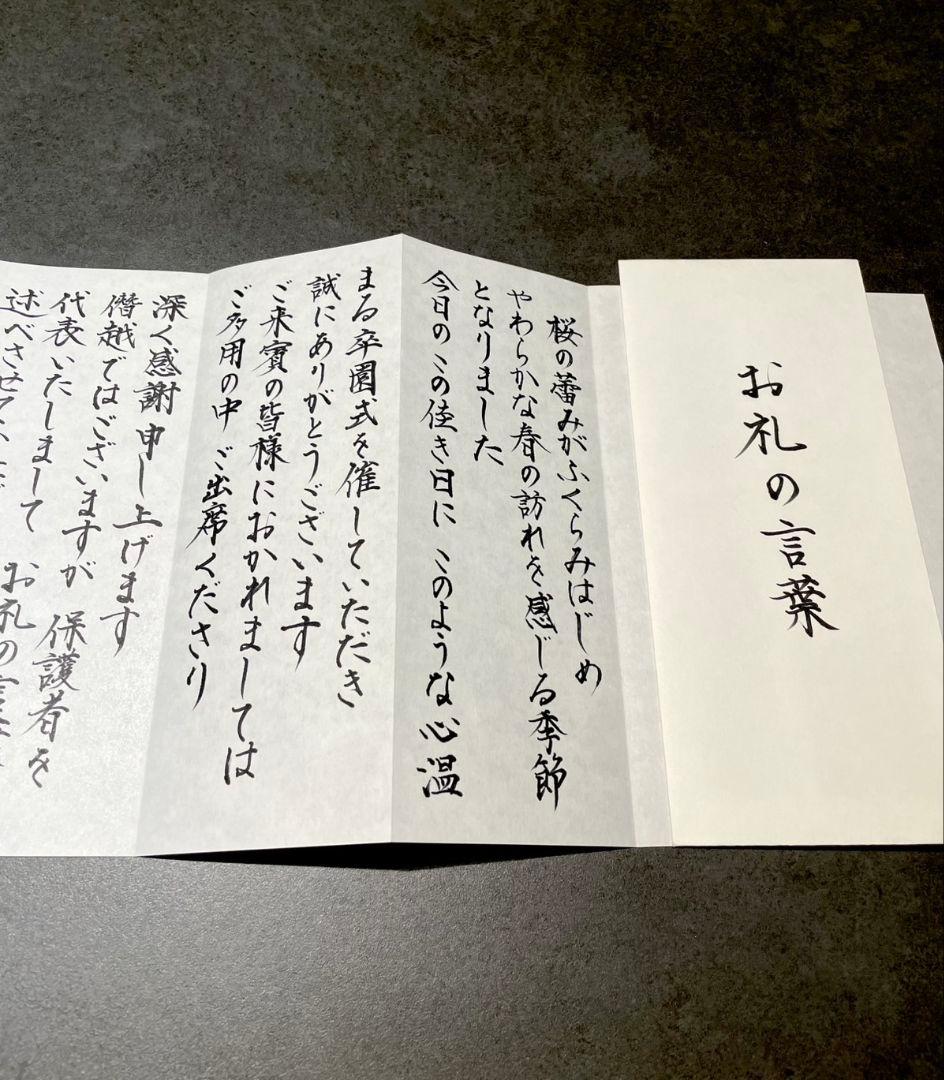 お礼の言葉
桜の蕾みがふくらみはじめ
やわらかな春の訪れを感じる季節
となりました
今日のこの佳き日に このような心温
まる卒園式を催していただき
誠にありがとうございます
ご来賓の皆様におかれましては
ご多用の中 ご出席くださり
深く感謝申し上げます
僭越ではございますが 保護者を
代表いたしまして お礼の言
述べさせて